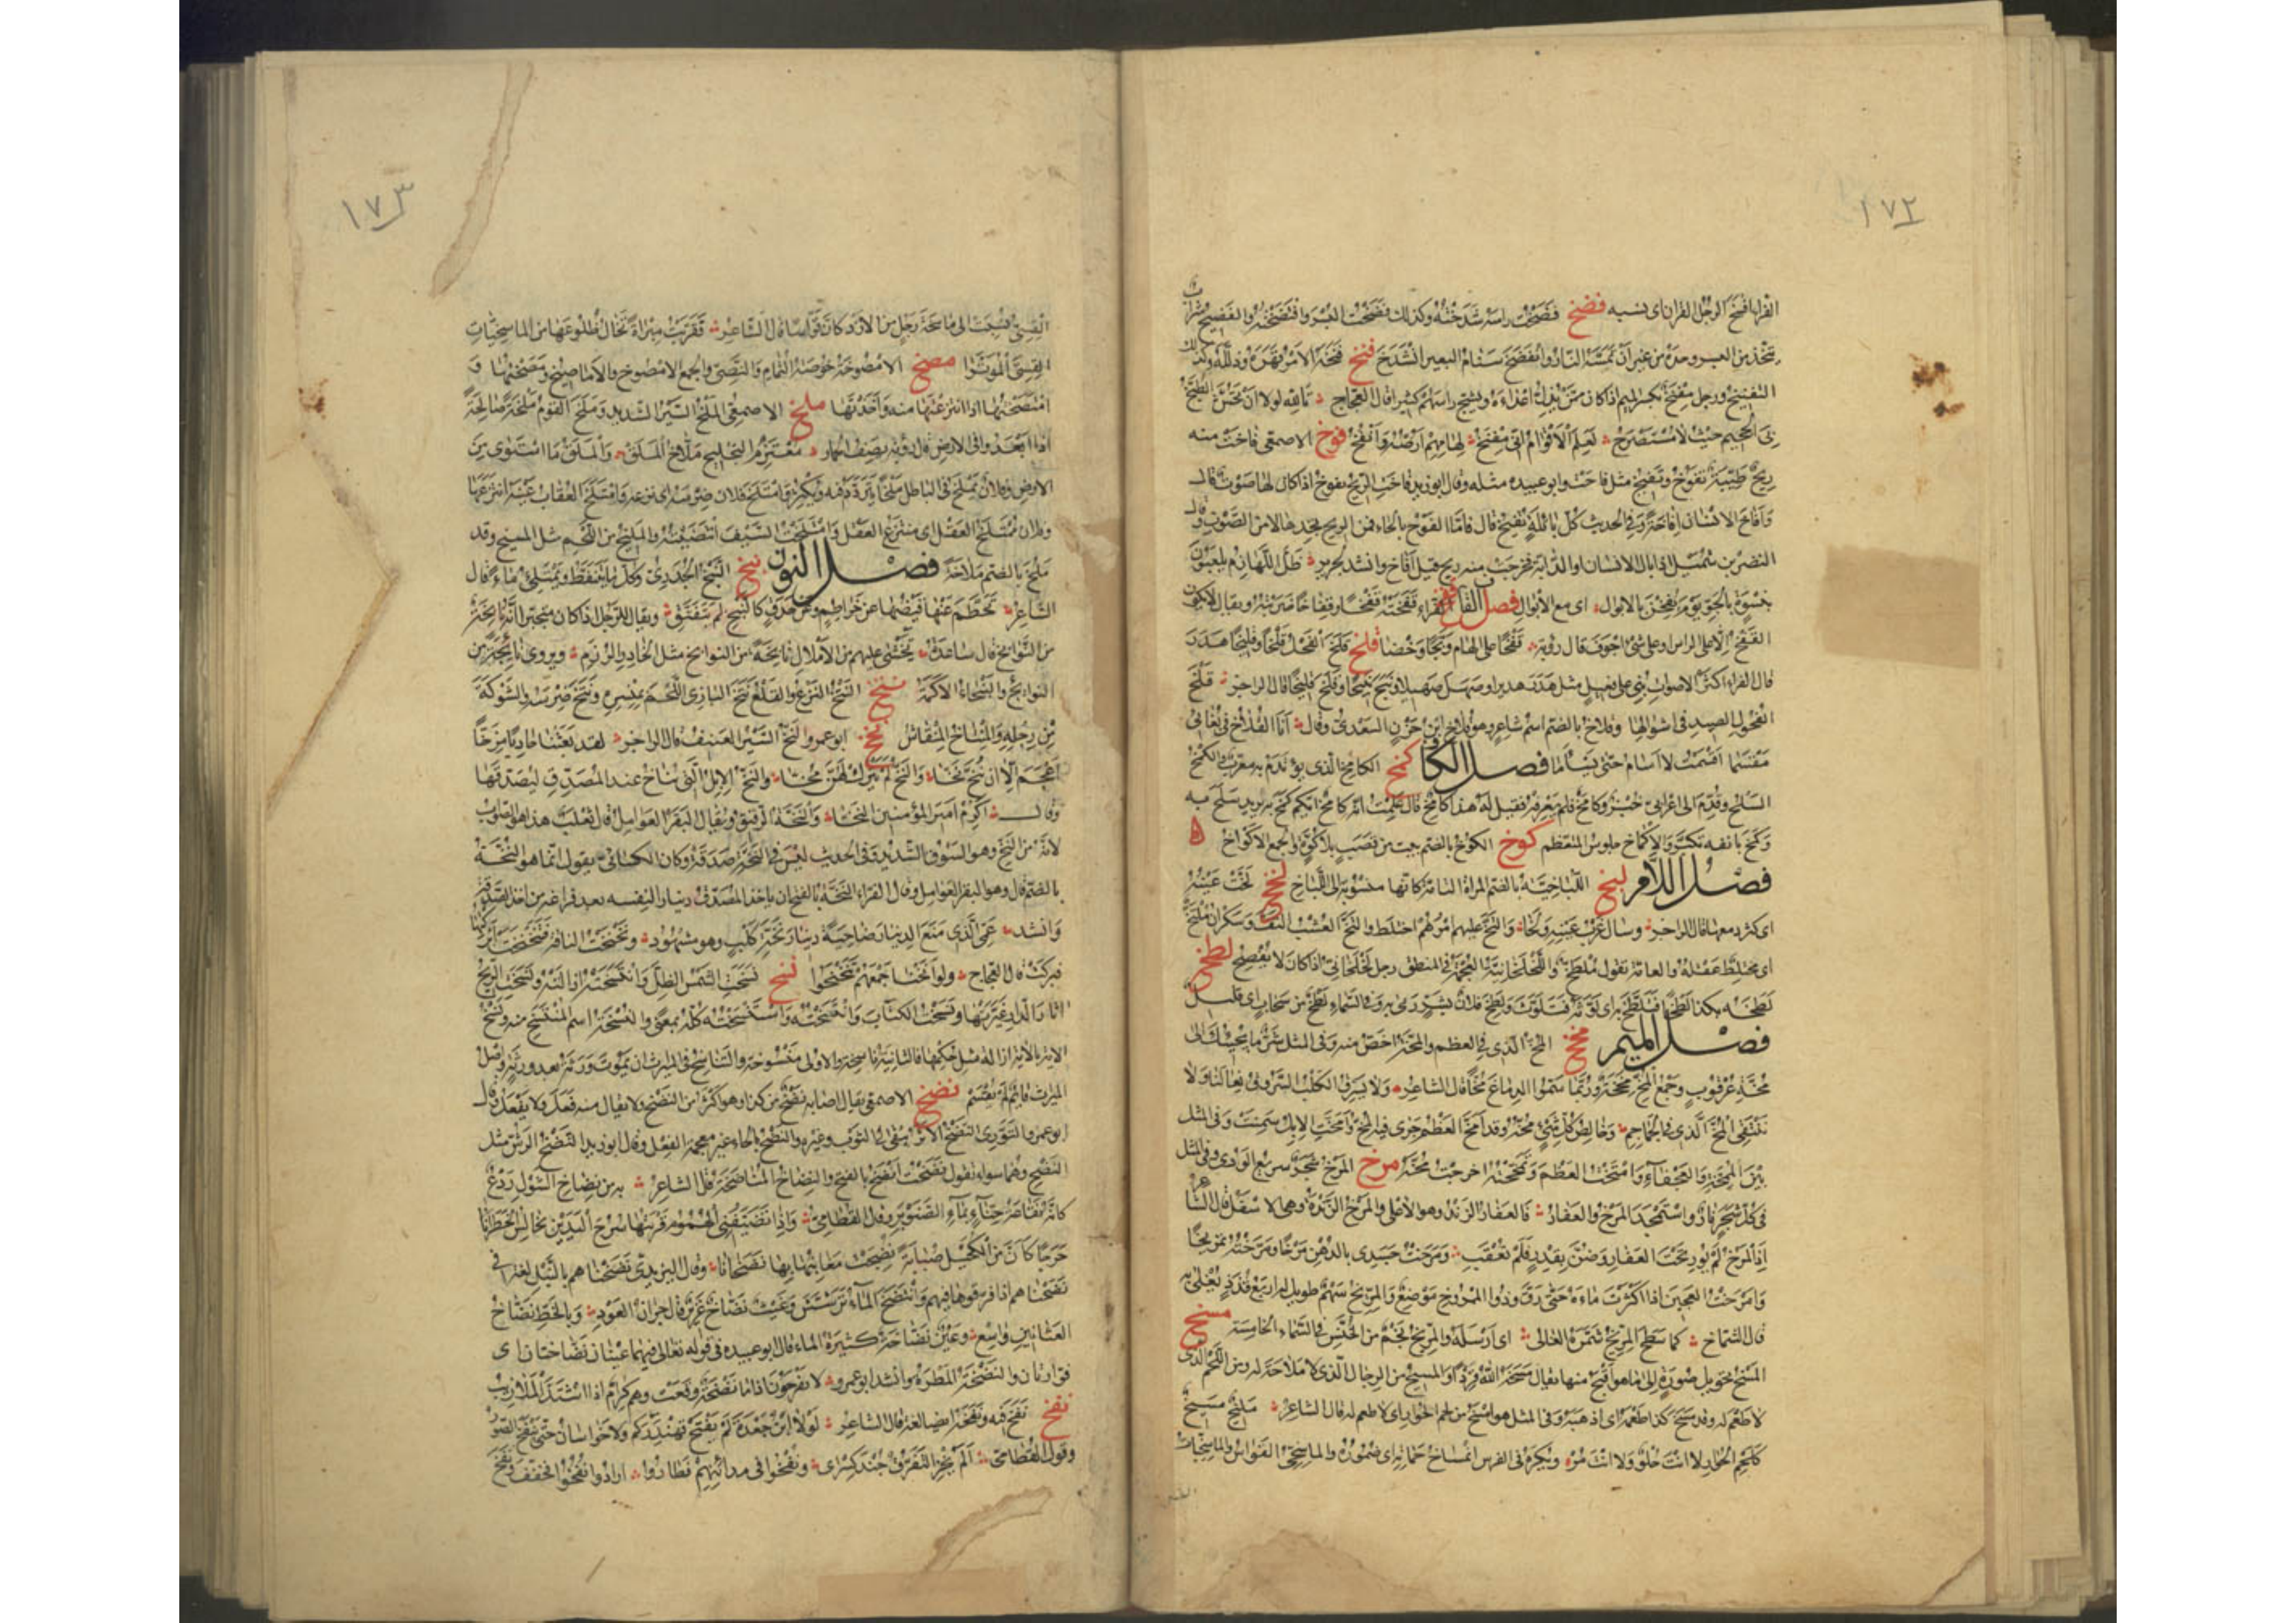 ١٧٢
الفراء افسخ الرجل القران اى نسيه فضخ فضخت راسه شدخته وكذلك فضخت البسر وافتضخته والفضيخ شراب
يتخذ من البسر وحده من غير ان تمسه النار وانفضخ سنام البعير انشدخ فنخ فنخه الامر قهره وذلله وكذلك
التفنيخ ورجل مفنخ بكسر الميم اذا كان ممن يذل اعداءه ويشج راسهم كثيرا قال العجاج تالله لولا ان تحش الطبخ
بى الجحيم حيث لا مستصرخ لعلم الاقوام انى مفنخ لهامهم ارضه وانقخ فوخ الاصمعى فاخت منه
ريح طيبة تفوخ وتفيخ مثل فاحت وابو عبيده مثله وقال ابو زيد فاخت الريح تفوخ اذا كان لها صوت قال
وافاخ الانسان افاخة وفى الحديث كل بائلة تفيخ قال فاما الفوح بالحاء فمن الريح تجدها لا من الصوت وقال
النضر بن شميل اذا بال الانسان او الدابة فخرجت منه ريح قيل افاخ وانشد لجرير ظل اللهازم يلعبون
بنسوة بالجو يوم يفخن بالابوال اى مع الابوال فصل القاف الفراء قفخته قفخا وقفاخا ضربته ويقال لا يكون
القفخ الا على الراس او على شئ اجوف قال رؤبة قفخا على الهام وبجا وخضا قلخ قلخ الفحل قلخا وقليخا هدر
قال الفراء اكثر الاصوات بنى على فعيل مثل هدر هديرا وصهل صهيلا ونبح نبيحا وقلخ قليخا قال الراجز قلخ
الفحول الصيد فى اشوالها وقلاخ بالضم اسم شاعر وهو قلاخ ابن حزن السعدى وقال انا القلاخ فى بغائى
مقسما اقسمت لا اسام حتى يساما فصل الكاف كمخ الكامخ الذى يؤتدم به معرب والكمخ
السلح وقدم الى اعرابى خبز وكامخ فلم يعرفه فقيل له هذا كامخ قال علمت انه كامخ ايكم كمخ به يريد سلح به
وكمخ بانفه تكبر والاكماخ جلوس المتعظم كوخ الكوخ بالضم بيت من قصب بلا كوة والجمع الاكواخ
فصل اللام لبخ اللباخية بالضم المراة التامة كانها منسوبة الى اللباخ لخخ لخت عينه
اى كثر دمعها قال الراجز وسال غرب عينه ولخا والتخ عليهم امرهم اختلط والتخ العشب التف وسكران ملتخ
اى مختلط عقله والعامة تقول ملطخ واللخلخانية العجمة فى المنطق رجل لخلخانى اذا كان لا يفصح لطخ
لطخه بكذا لطخا فتلطخ به اى لوثه فتلوث ولطخ فلان بشر رمى به وفى السماء لطخ من سحاب اى قليل
فصل الميم مخخ المخ الذى فى العظم والمخة اخص منه وفى المثل شر ما يجيئك الى
مخة عرقوب وجمع المخ مخخة وربما سموا الدماغ مخا قال الشاعر ولا يسرق الكلب السرو فى نعالنا ولا
ننتقى المخ الذى فى الجماجم وخالص كل شئ مخه وقد امخ العظم جرى فيه المخ وامخت الابل سمنت وفى المثل
بين الممخة والعجفاء وامتخت العظم وتمخخته اخرجت مخه مرخ المرخ شجر سريع الورى وفى المثل
فى كل شجر نار واستمجد المرخ والعفار فالعفار الزند وهو الاعلى والمرخ الزندة وهى الاسفل قال الشاعر
اذا المرخ لم يور تحت العفار وضن بقدر فلم تعقب ومرخت جسدى بالدهن مرخا ومرخته تمريخا
وامرخت العجين اذا اكثرت ماءه حتى رق وذو الممروخ موضع والمريخ سهم طويل له اربع قذذ يغلى به
قال الشماخ كما سطع المريخ شمره الغالى اى ارسله والمريخ نجم من الخنس فى السماء الخامسة مسخ
المسخ تحويل صورة الى ما هو اقبح منها يقال مسخه الله قردا والمسيخ من الرجال الذى لا ملاحة له ومن اللحم الذى
لا طعم له وقد مسخ كذا طعمه اى اذهبه وفى المثل هو امسخ من لحم الحوار اى لا طعم له قال الشاعر مليخ مسيخ
كلحم الحوار لا انت حلو ولا انت مر ويكره فى الفرس انمساخ حماته اى ضموره والماسخى القواس والماسخيات
١٧٣
القسى نسبت الى ماسخة رجل من الازد كان قواسا قال الشاعر فقربت مبراة تخال ضلوعها من الماسخيات
القسى الموترا مصخ الامصوخة خوصة الثمام والنصى والجمع الامصوخ والاماصيخ ومصختها و
امتصختها اذا انتزعتها منه واخذتها ملخ الاصمعى الملخ السير الشديد وملخ القوم ملخة صالحة
اذا ابعدوا فى الارض قال رؤبة يصف الحمار معتزم التجليح ملاخ الملق والملق ما استوى من
الارض وفلان يملخ فى الباطل ملخا يتردد فيه ويكثر وامتلخ فلان ضرسه اى نزعه وامتلخ العقاب عينه انتزعها
وفلان ممتلخ العقل اى منتزع العقل وامتلخت السيف انتضيته والمليخ من اللحم مثل المسيخ وقد
ملخ بالضم ملاخة فصل النون نبخ النبخ الجدرى وكل ما يتنفط ويمتلئ ماء قال
الشاعر تحطم عنها قيضها عن خراطم وعن حدق كالنبخ لم يتفتق ويقال للرجل اذا كان متجبرا انه نابخة
من النوابخ قال ساعدة يخشى عليهم من الاملاك نابخة من النوابخ مثل الخادر الرزم ويروى نابجة من
النوابج والنبخاء الاكمة نتخ النتخ النزع والقلع نتخ البازى اللحم بمنسره ونتخ ضرسه والشوكة
من رجله والمنتاخ المنقاش نخخ ابو عمرو النخ السير العنيف قال الراجز لقد بعثنا حاديا مزخا
اعجم الا ان ينخ نخا والنخ لم يترك لهن مخا والنخ الابل التى تناخ عند المصدق ليصدقها
وقال اكرم امير المؤمنين النخا والنخة الرقيق ويقال البقر العوامل قال ثعلب هذا هو الصواب
لانه من النخ وهو السوق الشديد وفى الحديث ليس فى النخة صدقة وكان الكسائى يقول انما هو النخة
بالضم قال وهو البقر العوامل وقال الفراء النخة بالفتح ان ياخذ المصدق دينارا لنفسه بعد فراغه من اخذ الصدقة
وانشد عمى الذى منع الدينار ضاحية دينار نخة كلب وهو مشهود ونخنخت الناقة فتنخنخت ابركتها
فبركت قال العجاج ولو انخنا جمعهم تنخنخوا نسخ نسخت الشمس الظل وانتسخته ازالته ونسخت الريح
اثار الدار غيرتها ونسخت الكتاب وانتسخته واستنسخته كله بمعنى والنسخة اسم المنتسخ منه ونسخ
الاية بالاية ازالة مثل حكمها فالثانية ناسخة والاولى منسوخة والتناسخ فى الميراث ان يموت ورثة بعد ورثة واصل
الميراث قائم لم يقسم نضخ الاصمعى يقال اصابه نضخ من كذا وهو اكثر من النضح ولا يقال منه فعل ولا يفعل وقال
ابو عمرو التوزى النضخ الاثر يبقى فى الثوب وغيره والنضح بالحاء غير معجمة الفعل وقال ابو زيد النضخ الرش مثل
النضح وهما سواء تقول نضخت انضخ بالفتح والنضاخ المناضخة قال الشاعر به من نضاخ الشول ردع
كانه نقاعة حناء بماء الصنوبر وقال القطامى واذا تضيفنى الهموم قريتها سرح اليدين تخالس الخطرانا
حرجا كان من الكحيل صبابة نضخت مغابنها بها نضخانا وقال اليزيدى نضخناهم بالنبل لغة فى
نضحناهم اذا فرقوها فيهم وانتضخ الماء ترشش وغيث نضاخ غزير قال جران العود وبالخط نضاخ
العثانين واسع وعين نضاخة كثيرة الماء قال ابو عبيدة فى قوله تعالى فيهما عينان نضاختان اى
فوارتان والنضخة المطرة وانشد ابو عمرو لا يفرحون اذا ما نضخة وقعت وهم كرام اذا اشتد الملازيب
نفخ نفخ فيه ونفخه ايضا لغة قال الشاعر لولا ابن جعدة لم يفتح قهندزكم ولا خراسان حتى ينفخ الصور
وقول القطامى الم يخز التفرق جند كسرى ونفخوا فى مدائنهم فطاروا ارادوا نفخوا فخفف ونفخ